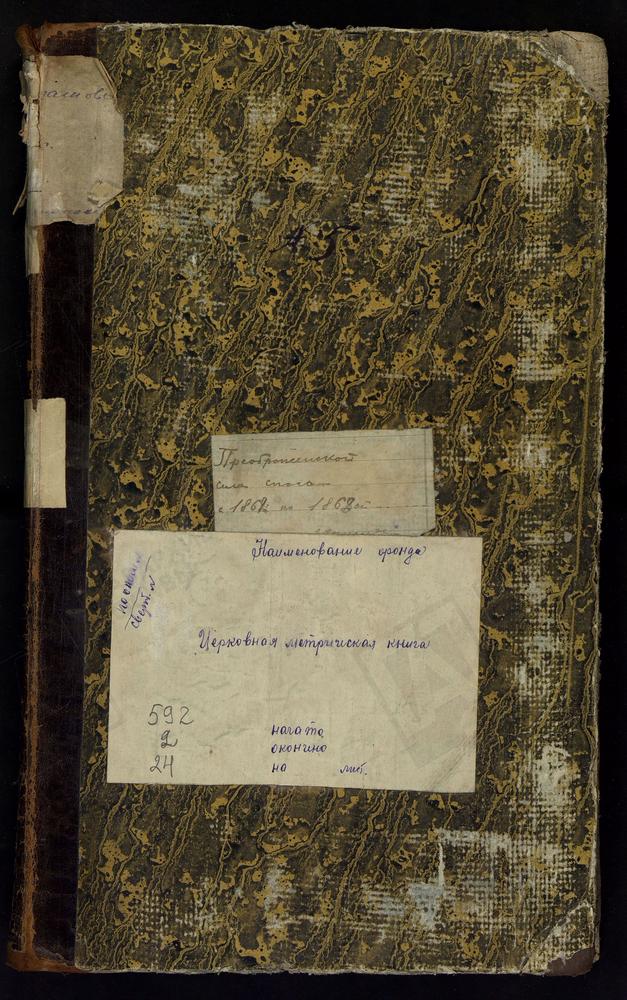 45
Преображенской
села
с 1862 по 1868
Наименование фонда
по описи
сверт. №
Церковная метрическая книга
592
2
24
начато
окончено
на лист.